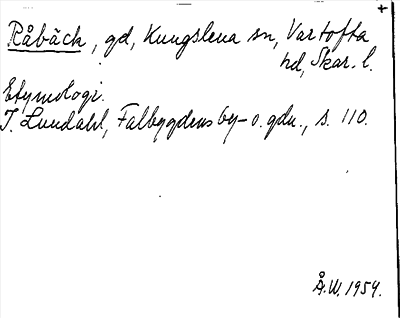 Råbäck, gd, Kungslena sn, Vartofta
hd, Skar. l.
Etymologi.
I. Lundahl, Falbygdens by- o. gdn., s. 110.
Å.W. 1954.